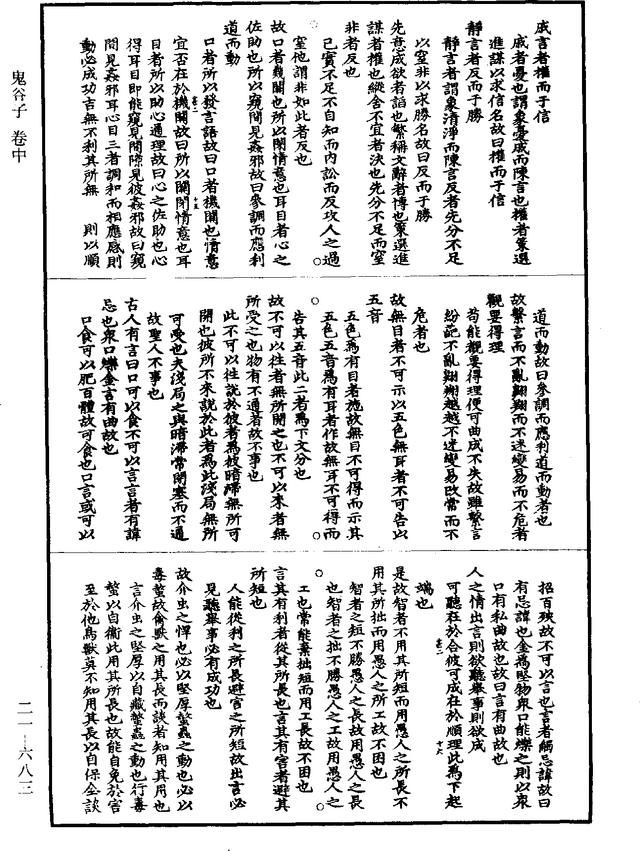 鬼谷子 卷中
戚言者權而于信
戚者憂也謂象憂戚而陳言也權者策選
進謀以求信名故曰權而于信
靜言者反而于勝
靜言者謂象清淨而陳言反者先分不足
以窒非以求勝名故曰反而于勝
先意成欲者諂也繁稱文辭者博也策選進
謀者權也縱舍不宜者決也先分不足而窒
非者反也
己實不足不自知而內訟而反攻人之過
窒他謂非如此者反也
故口者機關也所以關閉情意也耳目者心之
佐助也所以窺間見姦邪故曰參調而應利
道而動
口者所以發言語故曰口者機關也情意
宜否在於機關故曰所以關閉情意也耳
目者所以助心通理故曰心之佐助也心
得耳目即能窺見間隙見彼姦邪故曰窺
間見姦邪耳心目三者調和而相應感則
動必成功吉無不利其所無 則以順
道而動故曰參調而應利道而動者也
故繁言而不亂翱翔而不迷變易而不危者
觀要得理
苟能觀要得理便可曲成不失故雖繁言
紛葩不亂翱翔越越不迷變易改常而不
危者也
故無目者不可示以五色無耳者不可告以
五音
五色為有目者施故無目不可得而示其
五色五音為有耳者作故無耳不可得而
告其五音此二者為下文分也
故不可以往者無所開之也不可以來者無
所受之也物有不通者故不事也
此不可以往說於彼者為彼暗滯無所可
開也彼所不來說於此者為此淺局無所
可受也夫淺局之與暗滯常閉塞而不通
故聖人不事也
古人有言曰口可以食不可以言言者有諱
忌也衆口爍金言有曲故也
口食可以肥百體故可食也口言或可以
招百殃故不可以言也言者觸忌諱故曰
有忌諱也金為堅物衆口能爍之則以衆
口有私曲故也故曰言有曲故也
人之情出言則欲聽舉事則欲成
可聽在於合彼可成在於順理此為下起
端也
是故智者不用其所短而用愚人之所長不
用其所拙而用愚人之所工故不困也
智者之短不勝愚人之長故用愚人之長
也智者之拙不勝愚人之工故用愚人之
工也常能棄拙短而用工長故不困也
言其有利者從其所長也言其有害者避其
所短也
人能從利之所長避害之所短故出言必
見聽舉事必有成功也
故介虫之悍也必以堅厚螫蟲之動也必以
毒螫故禽獸之用其長而談者知用其用也
言介虫之堅厚以自藏螫蟲之動也行毒
螫以自衛此用其所長也故能自免於害
至於他鳥獸莫不知用其長以自保全談
二一-六八三